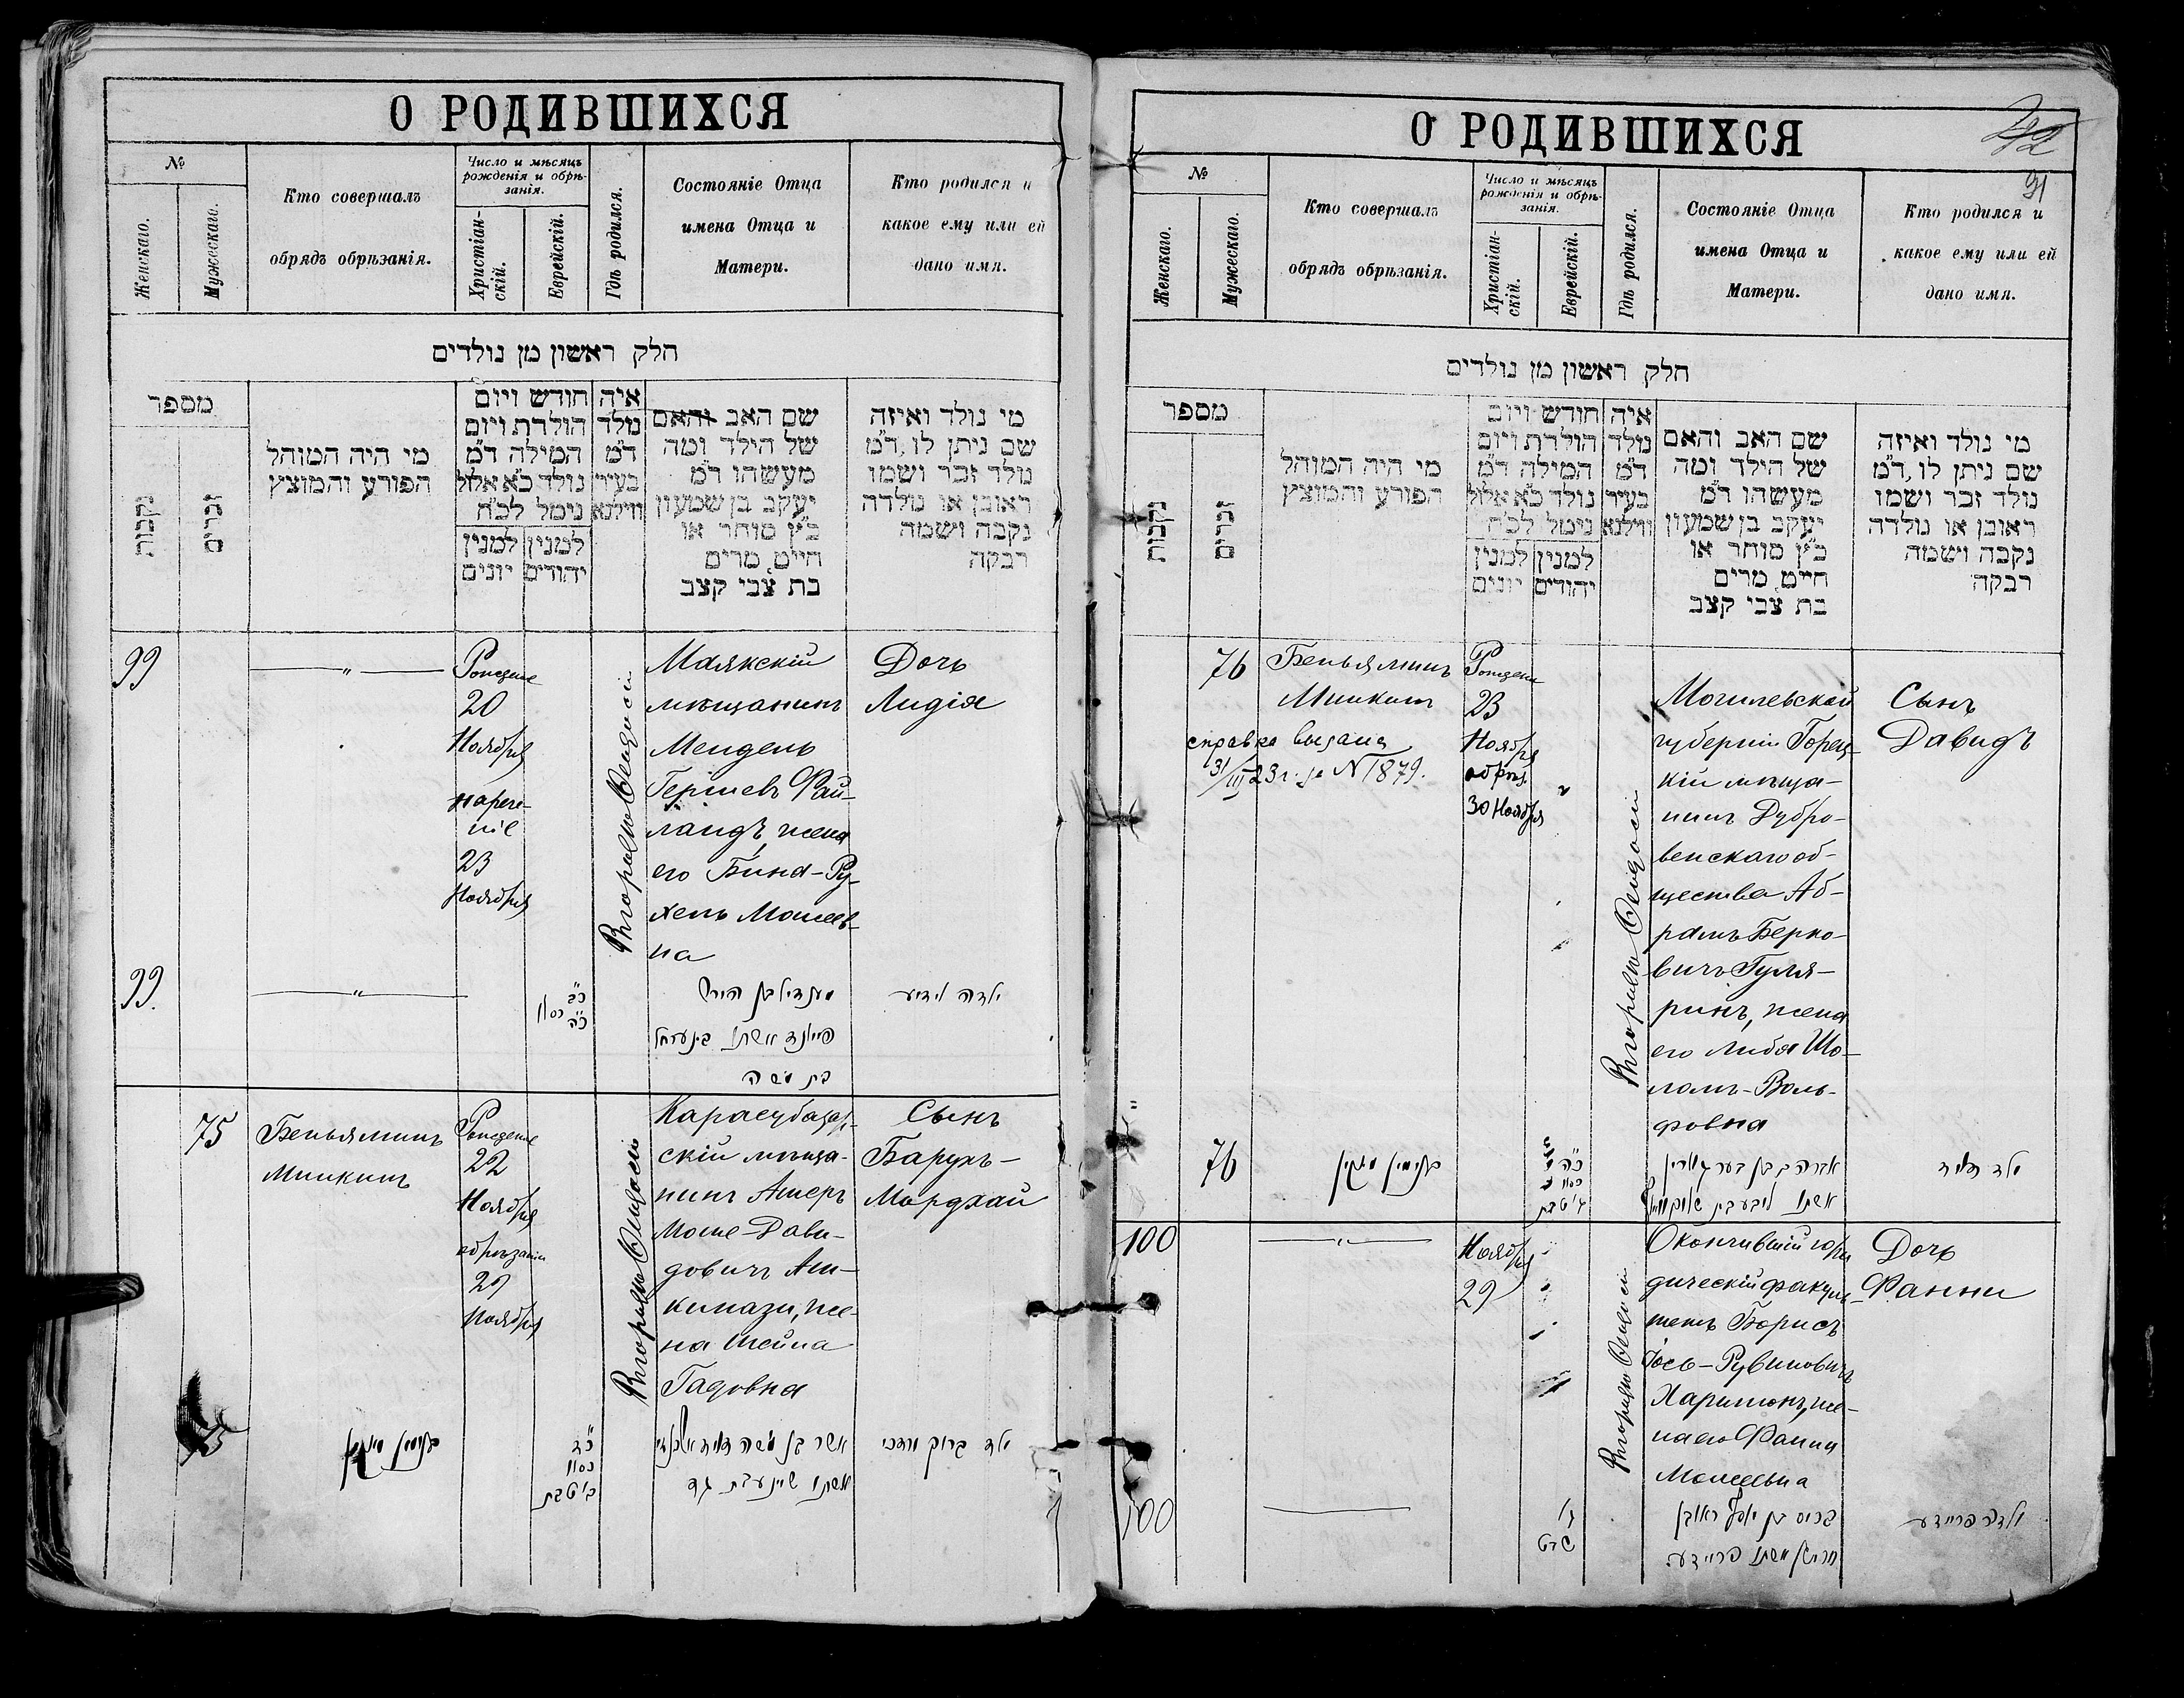 О РОДИВШИХСЯ
№
Женскаго.
Мужескаго.
Кто совершалъ
обрядъ обрѣзанія.
Число и мѣсяцъ
рожденія и обрѣ-
занія.
Христіан-
скій.
Еврейскій.
Гдѣ родился.
Состояніе Отца
имена Отца и
Матери.
Кто родился и
какое ему или ей
дано имя.
חלק ראשון מן נולדים
מספר
נקבות
זכרים
מי היה המוהל
הפורע והמוצץ
חודש ויום
הולדת ויום
המילה ד״מ
נולד כ״א אלול
נימל לכ״ח
למנין
יהודים
למנין
יונים
איה
נולד
ד״מ
בעיר
ווילנא
שם האב והאם
של הילד ומה
מעשהו ד״מ
יעקב בן שמעון
כ״ץ סוחר או
חייט, מרים
בת צבי קצב
מי נולד ואיזה
שם ניתן לו, ד״מ
נולד זכר ושמו
ראובן או נולדה
נקבה ושמה
רבקה
99
Рожденіе
20
Ноября
нарече-
ніе
23
Ноября
Маякскій
мѣщанинъ
Мендель
Гершевъ Фай-
ландъ, жена
его Бина-Ру-
хель Мошеев-
на
Дочь
Лидія
99.
כ״ב
כ״ה
כסלו
מענדיל בן הירש
פיילנד אשתו בינע רחל
בת משה
ילדה לידיע
75
Беньяминъ
Минкинъ
Рожденіе
22
Ноября
обрѣзаніи
29
Ноября
Карасубазар-
скій мѣща-
нинъ Ашеръ
Моше-Дави-
довичъ Аш-
кинази, же-
на Шейна
Гадовна
Сынъ
Барухъ-
Мордхай
75
בנימין מינקין
כ״ד
כסלו
ב׳ טבת
אשר בן משה דוד אשכנזי
אשתו שיינע בת גד
ילד ברוך מרדכי
О РОДИВШИХСЯ
42
91
№
Женскаго.
Мужескаго.
Кто совершалъ
обрядъ обрѣзанія.
Число и мѣсяцъ
рожденія и обрѣ-
занія.
Христіан-
скій.
Еврейскій.
Гдѣ родился.
Состояніе Отца
имена Отца и
Матери.
Кто родился и
какое ему или ей
дано имя.
חלק ראשון מן נולדים
מספר
נקבות
זכרים
מי היה המוהל
הפורע והמוצץ
חודש ויום
הולדת ויום
המילה ד״מ
נולד כ״א אלול
נימל לכ״ח
למנין
יהודים
למנין
יונים
איה
נולד
ד״מ
בעיר
ווילנא
שם האב והאם
של הילד ומה
מעשהו ד״מ
יעקב בן שמעון
כ״ץ סוחר או
חייט, מרים
בת צבי קצב
מי נולד ואיזה
שם ניתן לו, ד״מ
נולד זכר ושמו
ראובן או נולדה
נקבה ושמה
רבקה
76
Беньяминъ
Минкинъ
справка выдана
31/III 23 г. за N 1879.
Рожденіе
23
Ноября
обрѣз.
30 Ноября
Могилевской
губерніи Горец-
кій мѣща-
нинъ Дубро-
венскаго об-
щества Аб-
рамъ Берко-
вичъ Гуля-
ринъ, жена
его Либа Шо-
ломъ-Воль-
фовна
Сынъ
Давидъ
76
בנימין מינקין
כ״ה
כסלו
ג׳ טבת
אברהם בן בער גולארין
אשתו ליבע בת שלום וואלף
ילד דוד
100
Ноября
29
Окончившій юри-
дическій факуль-
тетъ Борисъ
Іосъ-Рувиновичъ
Харитонъ, же-
на его Фанни
Мошеевна
Дочь
Фанни
100
ג׳
שבט
בריס בן יוסף ראובן
חריטון אשתו פריידע
ילדה פריידע